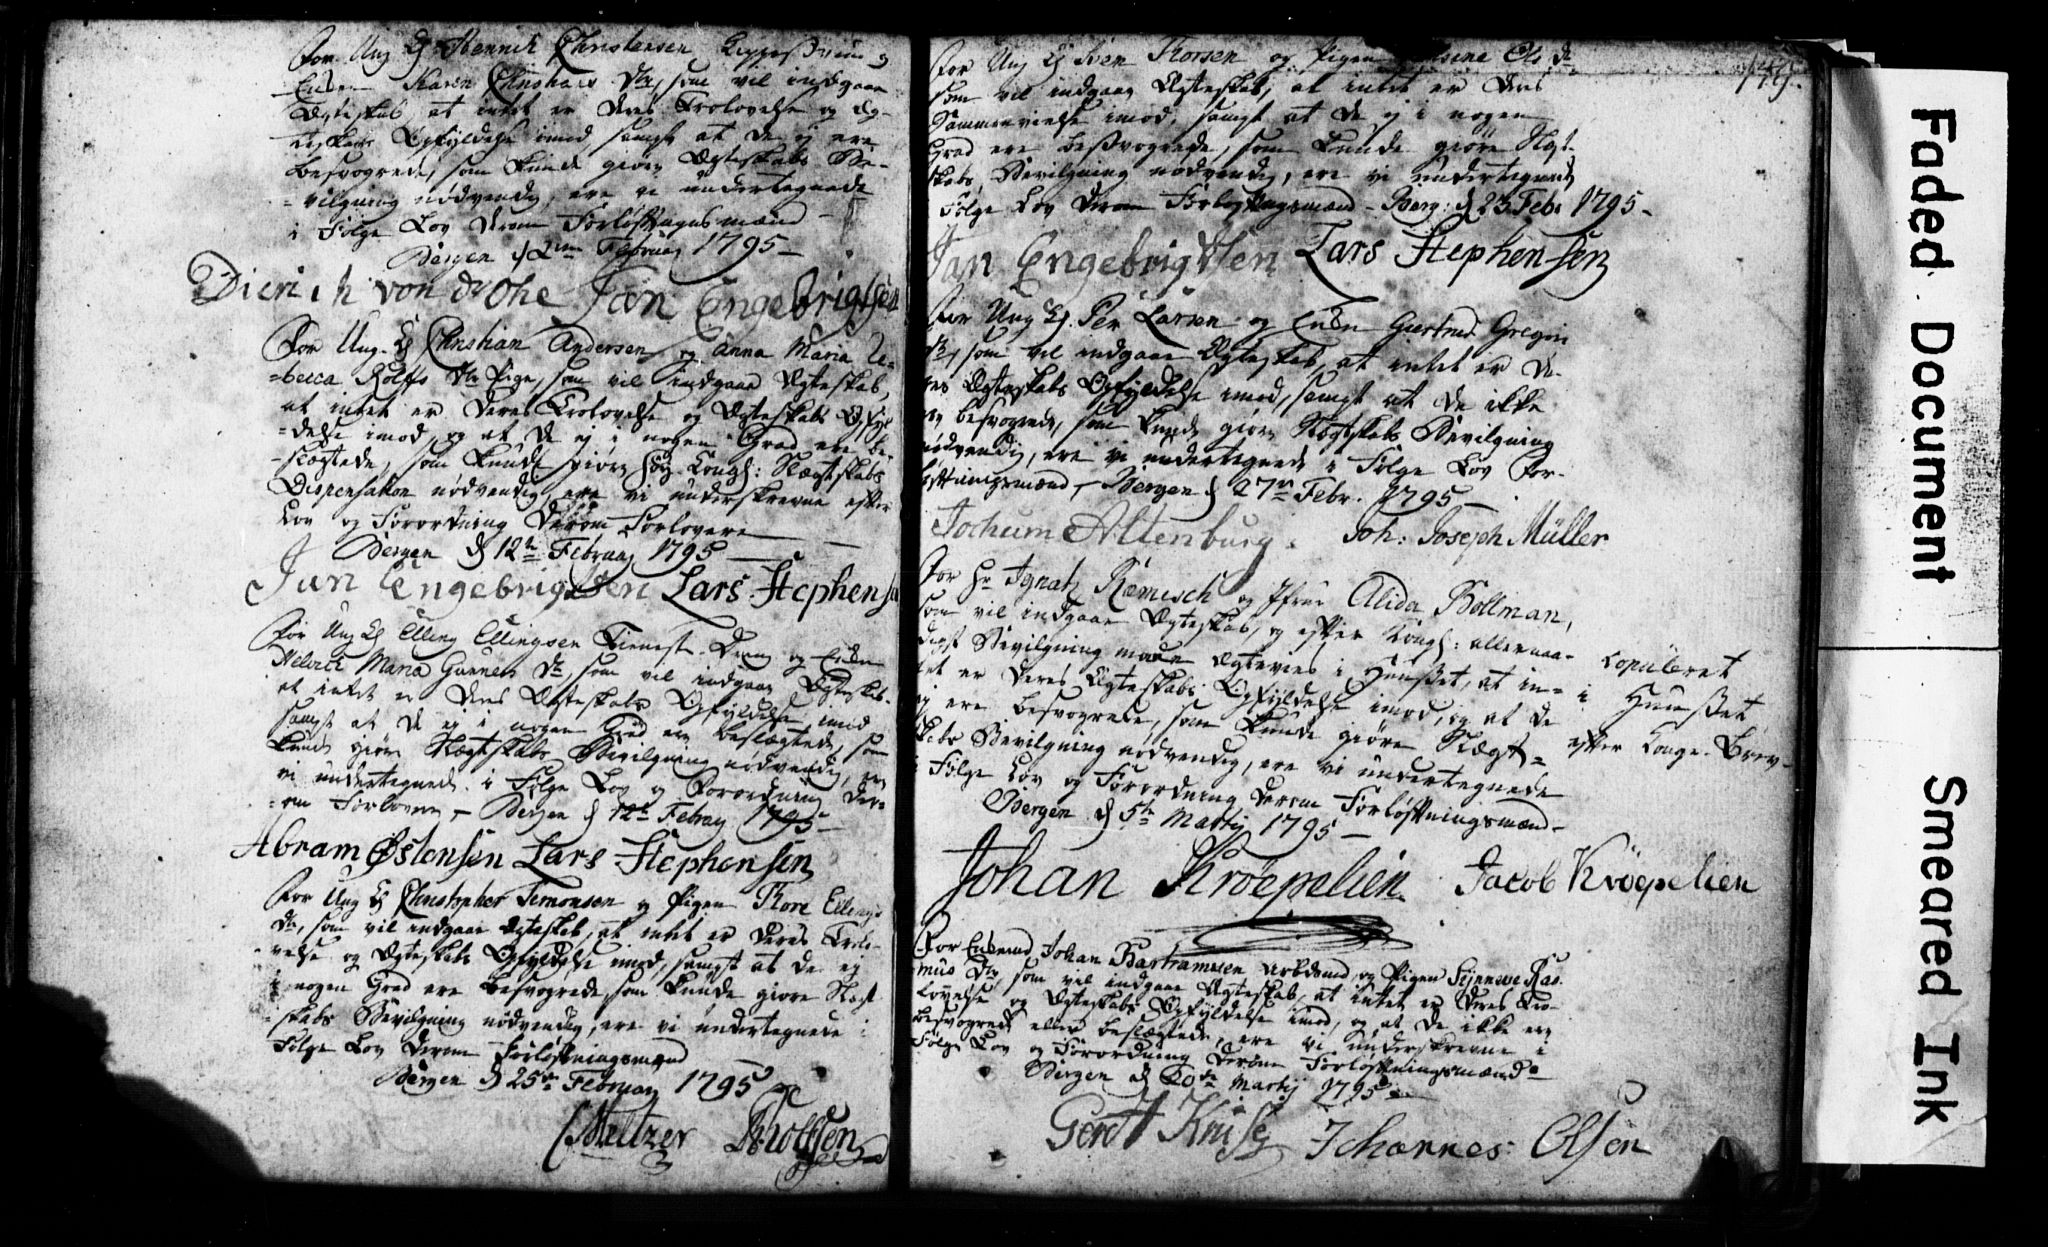 For Ung K Henrich Christensen
Enken Karen Christians Dtr, som vil indgaae
Ægteskab, at intet er Deres Trolovelse og Æg-
teskabs Opfyldelse imod samt at De ej ere
besvogrede, som kunde giøre Ægteskabs Be-
vilgning nødvendig, ere vi undertegnede
i Følge Lov Derom Forløftningsmænd
Bergen d 2den February 1795
Dierich von der Ohe Jan Engebrigtsen
For Ung K Christian Andersen og Anna Maria Re-
becca Rolffs Dtr Pige, som vil indgaae Ægteskab,
at intet er Deres Trolovelse og Ægteskabs Opfyl-
delse imod, og at De ej i nogen Grad ere be-
slægtede, som kunde giøre Kongl: Slægtskabs
Dispensation nødvendig, ere vi underskrevne efter
Lov og Forordning Derom Forlovere
Bergen d 12te February 1795
Jan Engebrigtsen Lars Stephensen
For Ung K Elling Ellingsen Tieneste Dreng og Enken
Maria Gunners Dtr, som vil indgaae Ægteskab,
at intet er Deres Ægteskabs Opfyldelse imod
samt at De ej i nogen Grad ere beslægtede, som
kunde giøre Slægtskabs Bevilgning nødvendig, ere
vi undertegnede i Følge Lov og Forordning Der-
om Forlovere, Bergen d 12te Febray 1795
Abram Østensen Lars Stephensen
For Ung K Christopher Simonsen og Pigen Thore Ellings
Dtr, som vil indgaae Ægteskab, at intet er Deres Trolo-
velse og Ægteskabs Opfyldelse imod, samt at De ej
i nogen Grad ere besvogrede, som kunde giøre Slægt-
skabs Bevilgning nødvendig, ere vi undertegnede i
Følge Lov Derom Forløftningsmænd
Bergen d 25de February 1795
Meltzer Rolfsen
For Ung K Iven Thorsen og Pigen Ols Dtr
som vil indgaae Ægteskab, at intet er Deres
Sammenvielse imod, samt at De ej i nogen
Grad ere besvogrede, som kunde giøre Slægt-
skabs Bevilgning nødvendig, ere vi undertegnede
Følge Lov Derom Forløftningsmænd - Berg: d 23 Febr 1795
Jan Engebrigtsen Lars Stephensen
For Ung K. Per Larsen og Enken Giertrud Gregori
Dtr, som vil indgaae Ægteskab, at intet er De-
res Ægteskabs Opfyldelse imod, samt at De ikke
ere besvogrede, som kunde giøre Slægtskabs Bevilgning
nødvendig, ere vi undertegnede i Følge Lov For-
løftningsmænd, Bergen d 27de Febr. 1795
Jochum Altenburg. Joh: Joseph Müller
For Hr Ignatz Ræmisch og Jfrue Alida Bollman,
som vil indgaae Ægteskab, og efter Kongl: allernaa-
digst Bevilgning maae Ægtevies i Huuset, at in-
tet er Deres Ægteskabs Opfyldelse imod, og at De
ej ere besvogrede, som kunde giøre Slægt-
skabs Bevilgning nødvendig, ere vi undertegnede
i Følge Lov og Forordning Derom Forløftningsmænd
Bergen d 5te Martij 1795
Copuleret
i Huuset
efter Konge-Brev
Johan Krøepelien Jacob Krøepelien
For Enkemd Johan Bartramsen Arbdsmd, og Pigen Synneve Ras-
mus Dtr, som vil indgaae Ægteskab, at intet er Deres Tro-
lovelse og Ægteskabs Opfyldelse imod, og at De ikke ere
besvogrede eller beslægtede, ere vi underskrevne i
Følge Lov og Forordning Derom Forløftningsmænd
Bergen d 20de Martij 1795
Gerdt Kruse Johannes Olsen
Faded Document
Smeared Ink